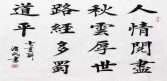 人情閱盡
秋雲厚世
路經多蜀
道平